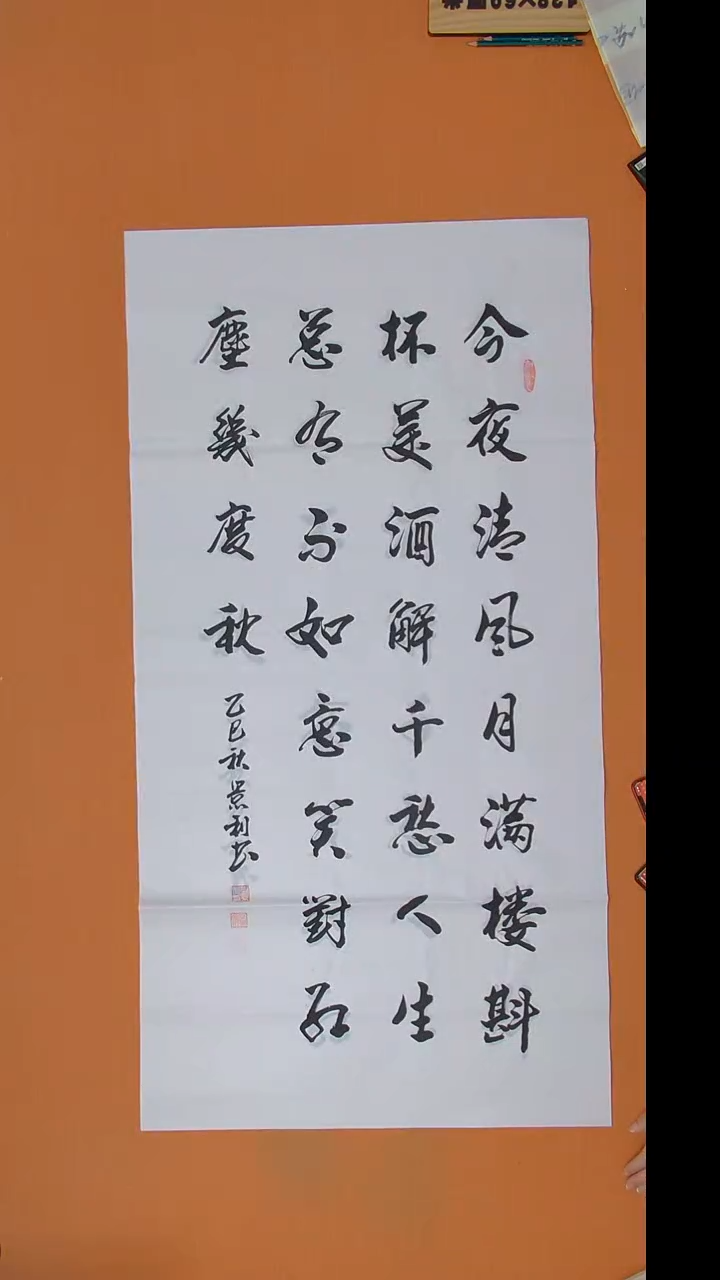 今夜清风月满楼斟
杯美酒解千愁人生
总有不如意笑對红
塵幾度秋
乙巳秋景利书